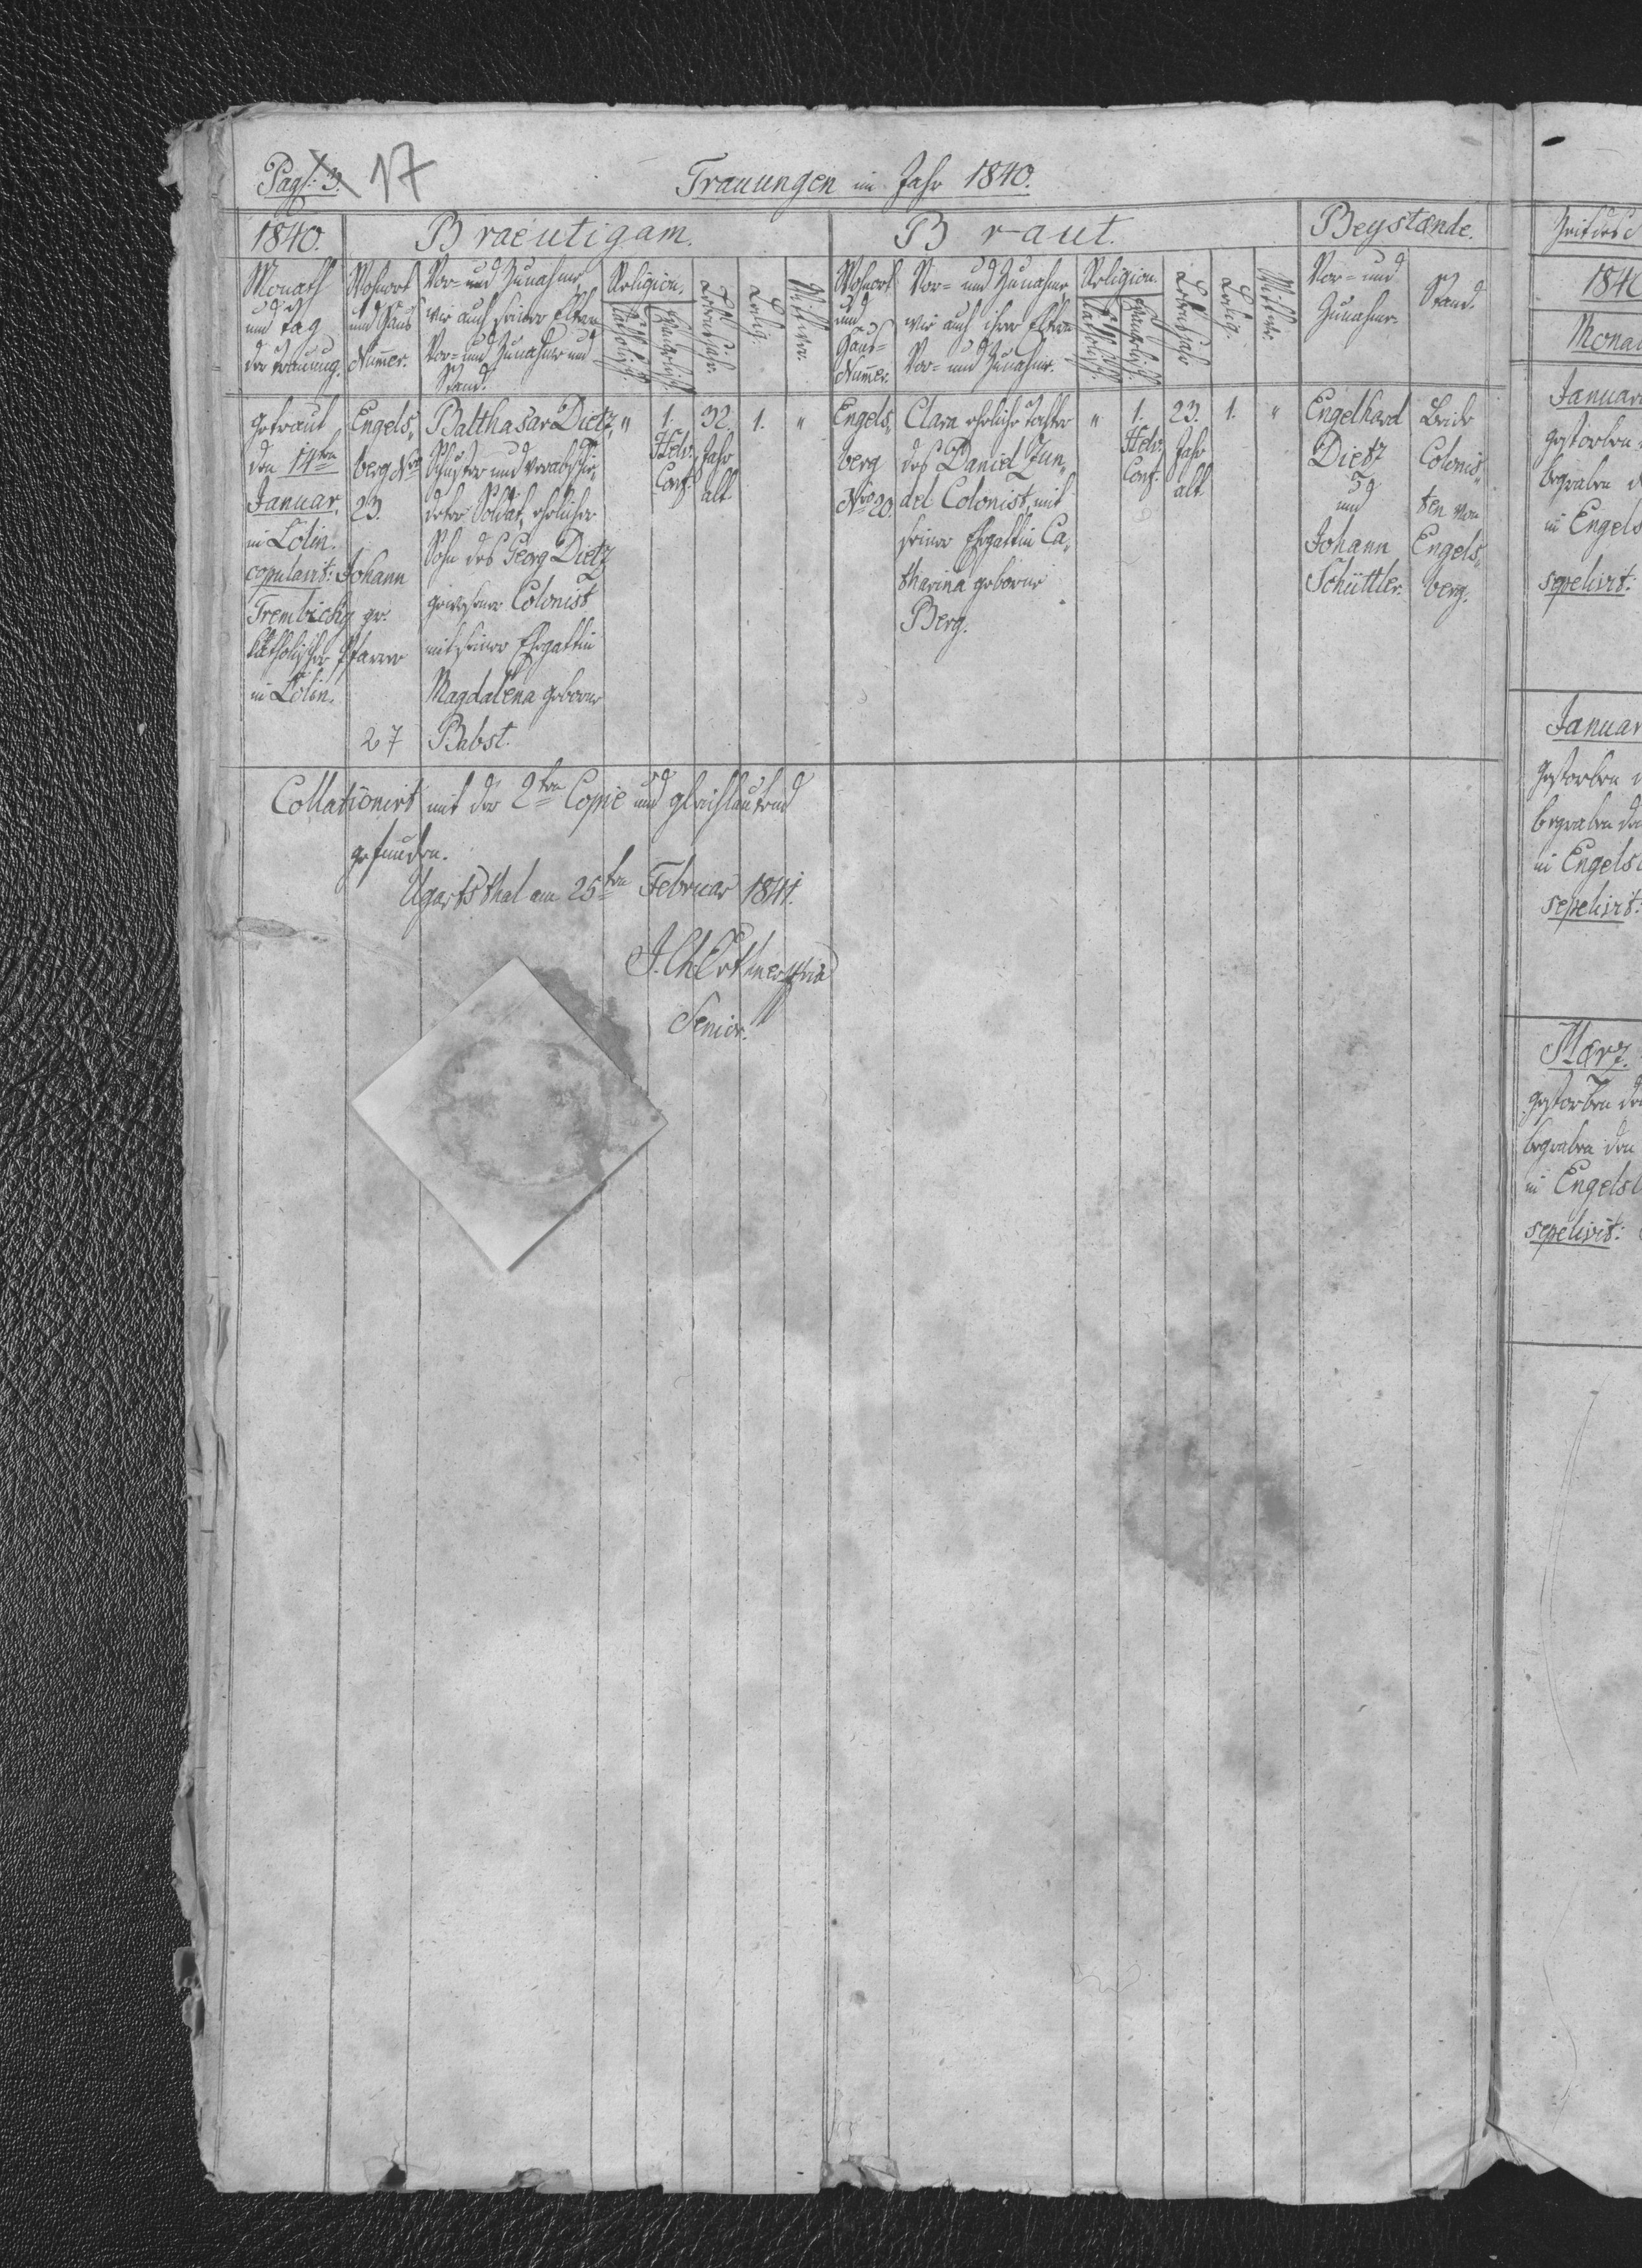 Pag: 3. 17
Trauungen im Jahr 1840.
1840.
Braeutigam.
Braut.
Beystænde.
Monath
und Tag
der Trauung.
Wohnort
und Haus
Num̄er.
Vor- und Zunahme,
wie auch seiner Eltern
Vor- und Zunahme und
Stand.
Religion.
Katholisch.
Evangelisch.
Lebensjahr.
Ledig.
Wittwer.
Wohnort
und
Haus-
Num̄er.
Vor- und Zunahme
wie auch ihrer Eltern
Vor- und Zunahme.
Religion.
Katholisch.
Evangelisch.
Lebensjahr
Ledig.
Wittwe.
Vor- und
Zunahme.
Stand.
getraut
den 14ten
Januar.
in Lolin.
copulavit: Johann
Trembicky gr.
katholischer Pfarrer
in Lolin.
Engels„
berg Nro
23.
27
Balthasar Dietz,
Schuster und verabschie„
deter Soldat, ehelicher
Sohn des Georg Dietz
gewesener Colonist
mit seiner Ehegattin
Magdalena geborne
Babst.
"
1.
Helv:
Conf:
32.
Jahr
alt
1.
"
Engels„
berg
Nro 20.
Clara eheliche Tochter
des Daniel Zun„
del Colonist, mit
seiner Ehegattin Ca„
tharina geborne
Berg.
"
1.
Helv:
Conf:
23.
Jahr
alt
1.
"
Engelhard
Dietz
und
Johann
Schüttler.
Beide
Colonis„
ten von
Engels„
berg.
Collationirt mit der 2ten Copie und gleichlautend
gefunden.
Ugartsthal am 25ten Februar 1841.
Senior.
Zeit des
1840
Mona
Januar
gestorben
begraben d
in Engels
sepelivit:
Januar
gestorben
begraben den
in Engels
sepelivit:
Mærz.
gestorben de
begraben den
in Engels
sepelivit: